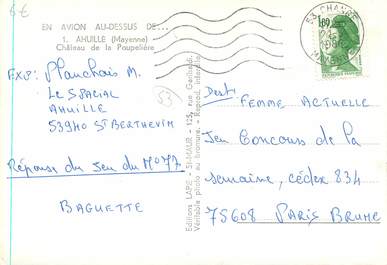 6€
EN AVION AU-DESSUS DE...
1. AHUILLE (Mayenne)
Château de la Poupelière
EXP: Planchais M.
Le SPACIAL
AHUILLE
53940 St BERTHEVIN
53
Réponse du Jeu du N° 77
BAGUETTE
Editions LAPIE - St-MAUR - 125, rue Garibaldi.
Véritable photo au bromure - Reprod. interdite
MAYENNE
1,80
Dest:
FEMME ACTUELLE
Jeu Concours de la
semaine, cédex 834
75608 PARIS BRUNE